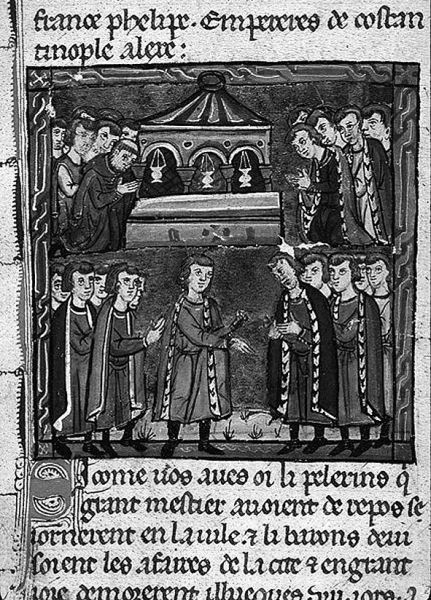 france phelipe. Empereres de costan
tinople alexe:
Si come vos aves oi li pelerins q̄
grant mestier avoient de repos se
iornerent en la uile ⁊ li barons deui
soient les afaires de la cite ⁊ en grant
ioie demorerent illueques .viii. iors. ⁊